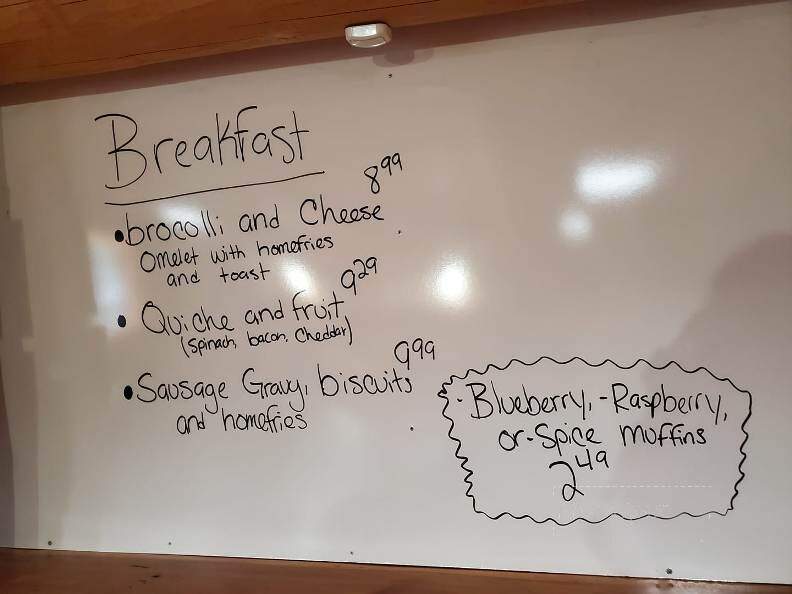 Breakfast
8.99
•brocolli and Cheese
omelet with homefries
and toast
9.29
• Quiche and fruit
(Spinach, bacon, Cheddar)
9.99
•Sausage Gravy, biscuits
and homefries
-Blueberry, -Raspberry,
or-Spice muffins
2.49